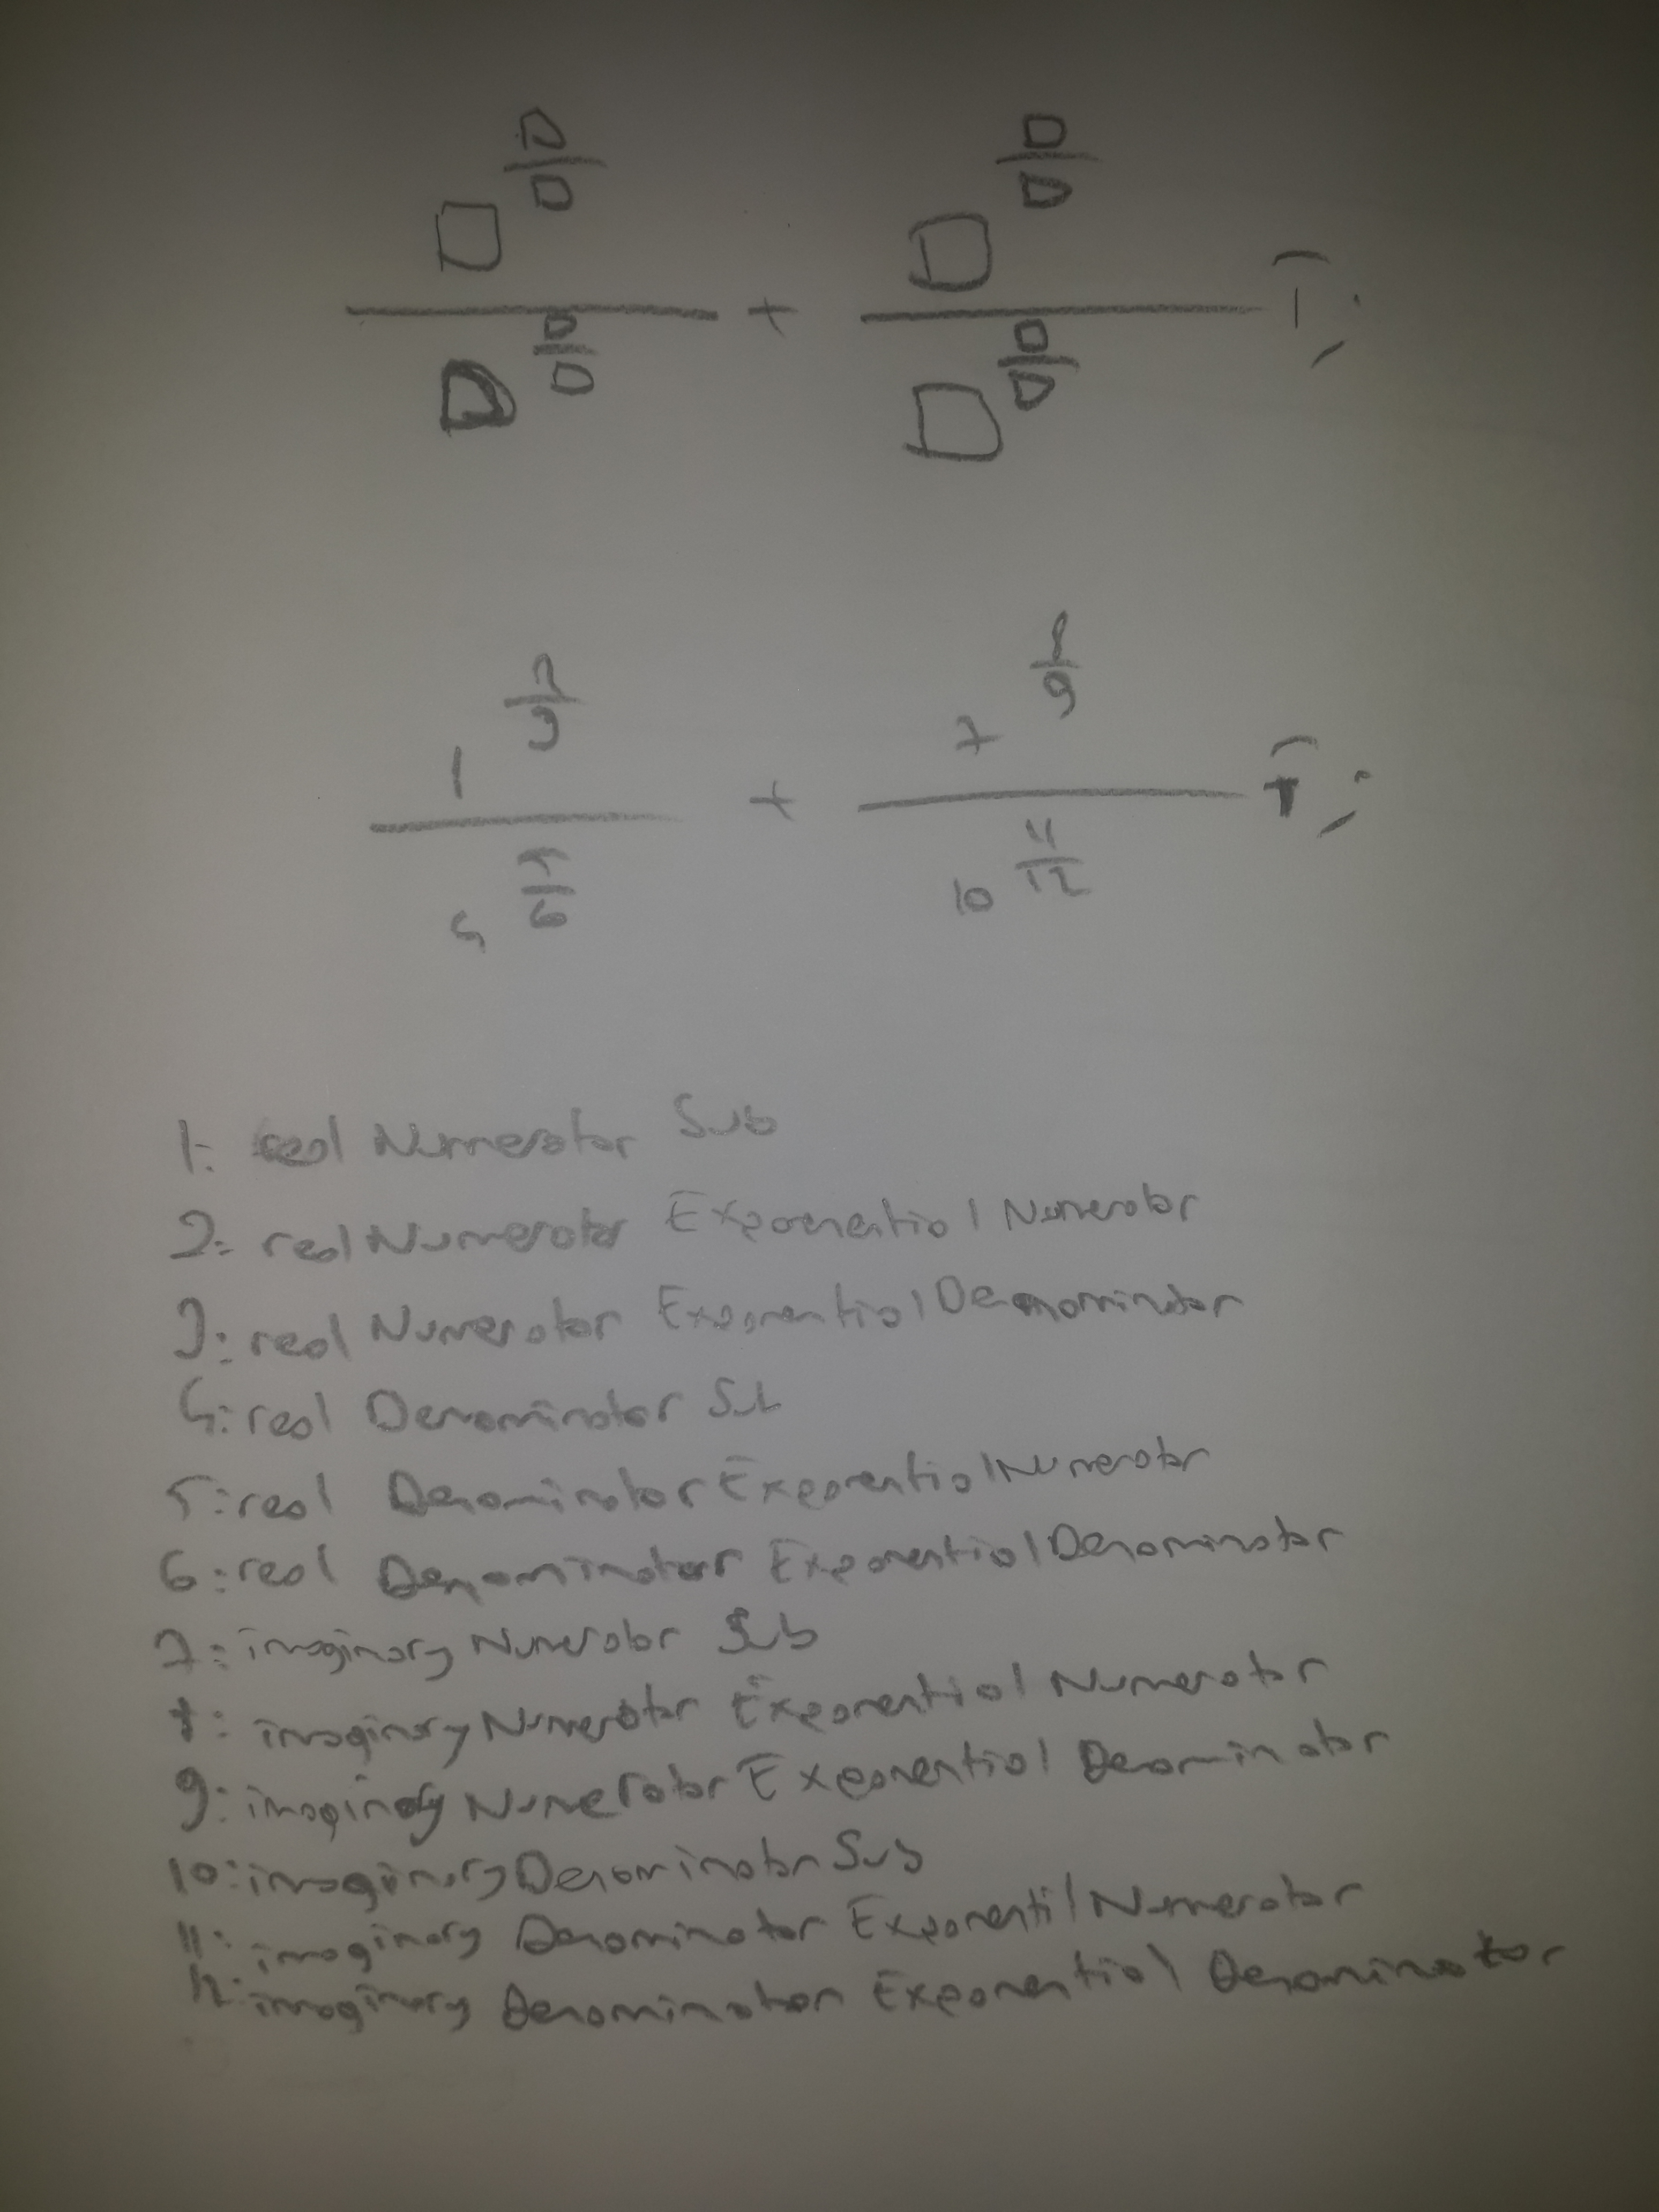 □^(□/□) / □^(□/□) + □^(□/□) / □^(□/□) i;
1^(2/3) / 4^(5/6) + 7^(8/9) / 10^(11/12) i;
1: real Numerator Sub
2: real Numerator Exponential Numerator
3: real Numerator Exponential Denominator
4: real Denominator Sub
5: real Denominator Exponential Numerator
6: real Denominator Exponential Denominator
7: imaginary Numerator Sub
8: imaginary Numerator Exponential Numerator
9: imaginary Numerator Exponential Denominator
10: imaginary Denominator Sub
11: imaginary Denominator Exponentil Numerator
12: imaginary Denominator Exponential Denominator